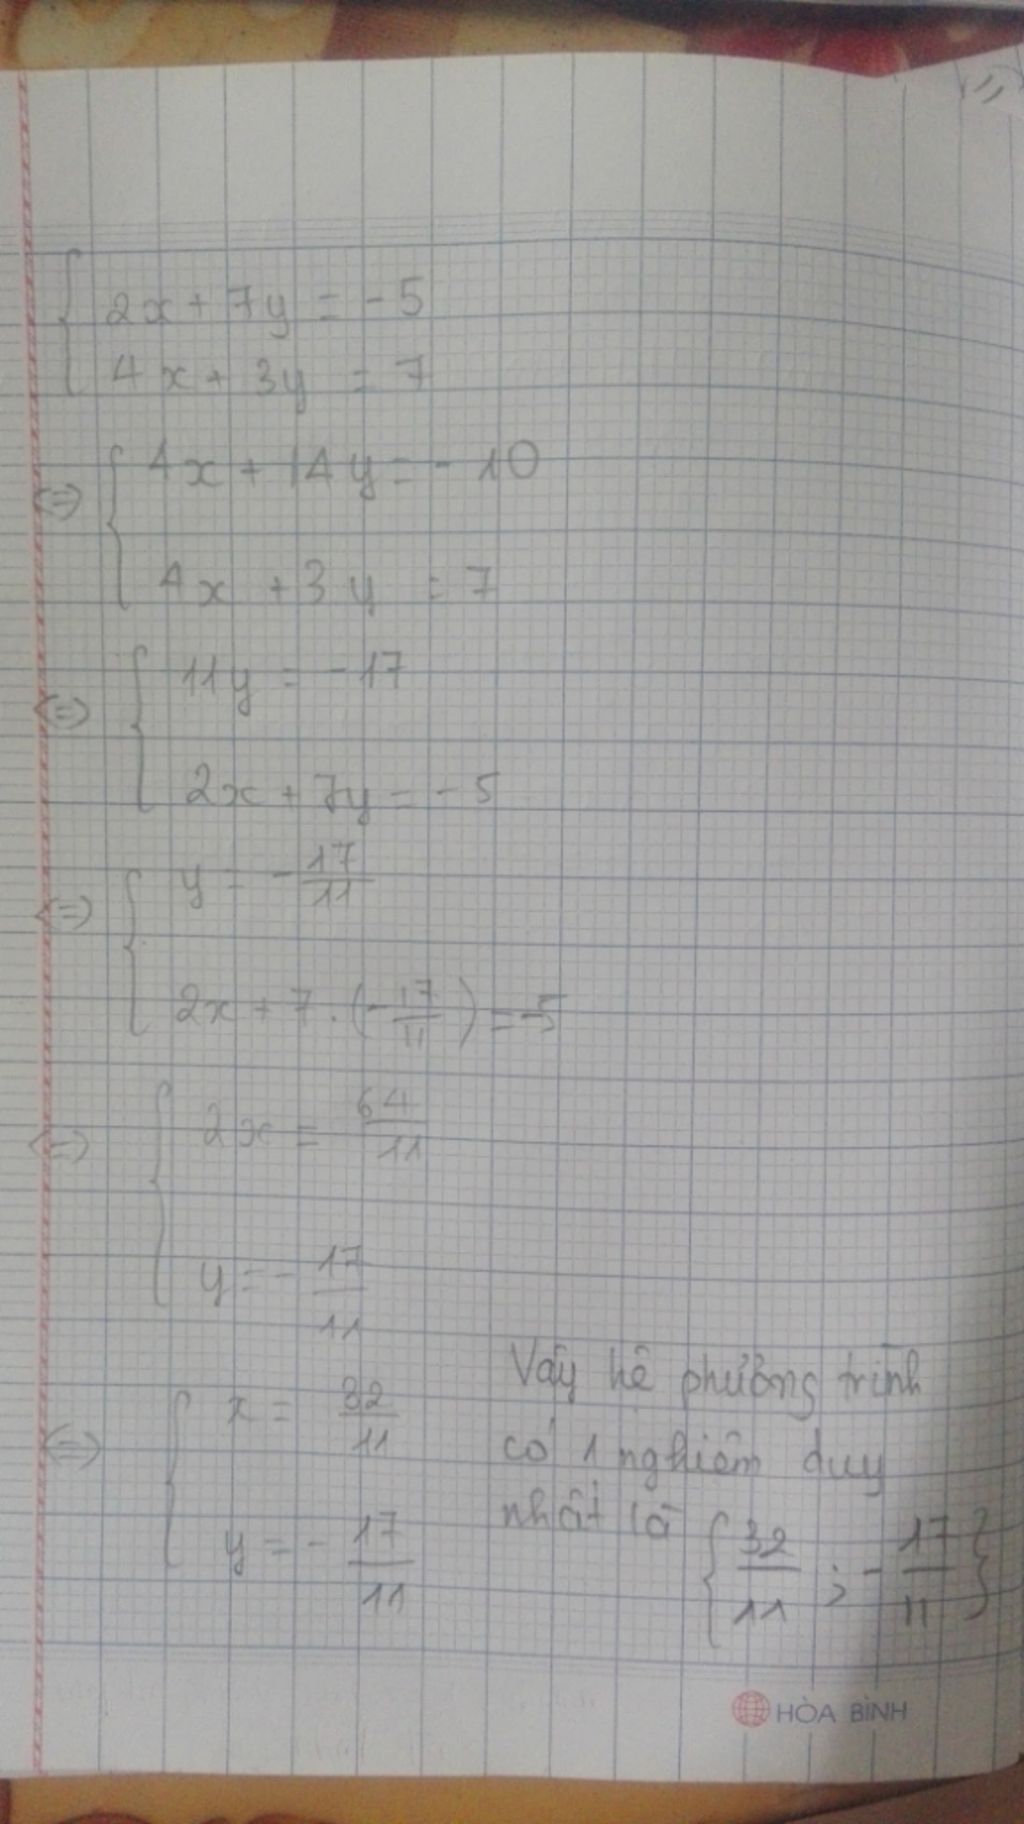 { 2x + 7y = -5
4x + 3y = 7
<=> { 4x + 14y = -10
4x + 3y = 7
<=> { 11y = -17
2x + 7y = -5
<=> { y = -17/11
2x + 7.(-17/11) = -5
<=> { 2x = 64/11
y = -17/11
<=> { x = 32/11
y = -17/11
Vậy hệ phương trình
có 1 nghiệm duy
nhất là {32/11 ; -17/11}
HÒA BÌNH